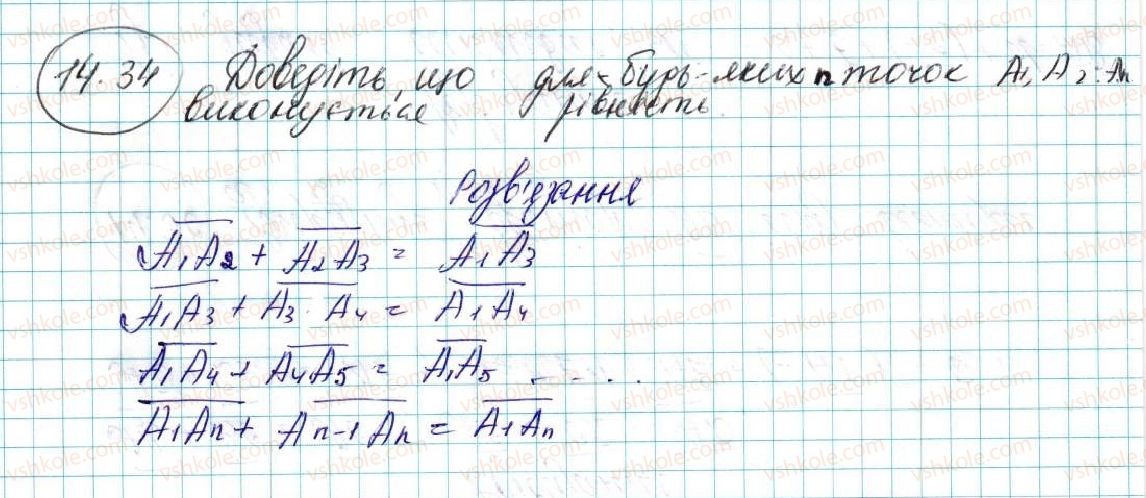 14.34 Доведіть, що для будь-яких n точок A₁, A₂...Aₙ
виконується рівність.
Розв'язання
A̅₁A̅₂ + A̅₂A̅₃ = A̅₁A̅₃
A̅₁A̅₃ + A̅₃A̅₄ = A̅₁A̅₄
A̅₁A̅₄ + A̅₄A̅₅ = A̅₁A̅₅ ....
A̅₁A̅ₙ + A̅ₙ₋₁A̅ₙ = A̅₁A̅ₙ
vshkole.com